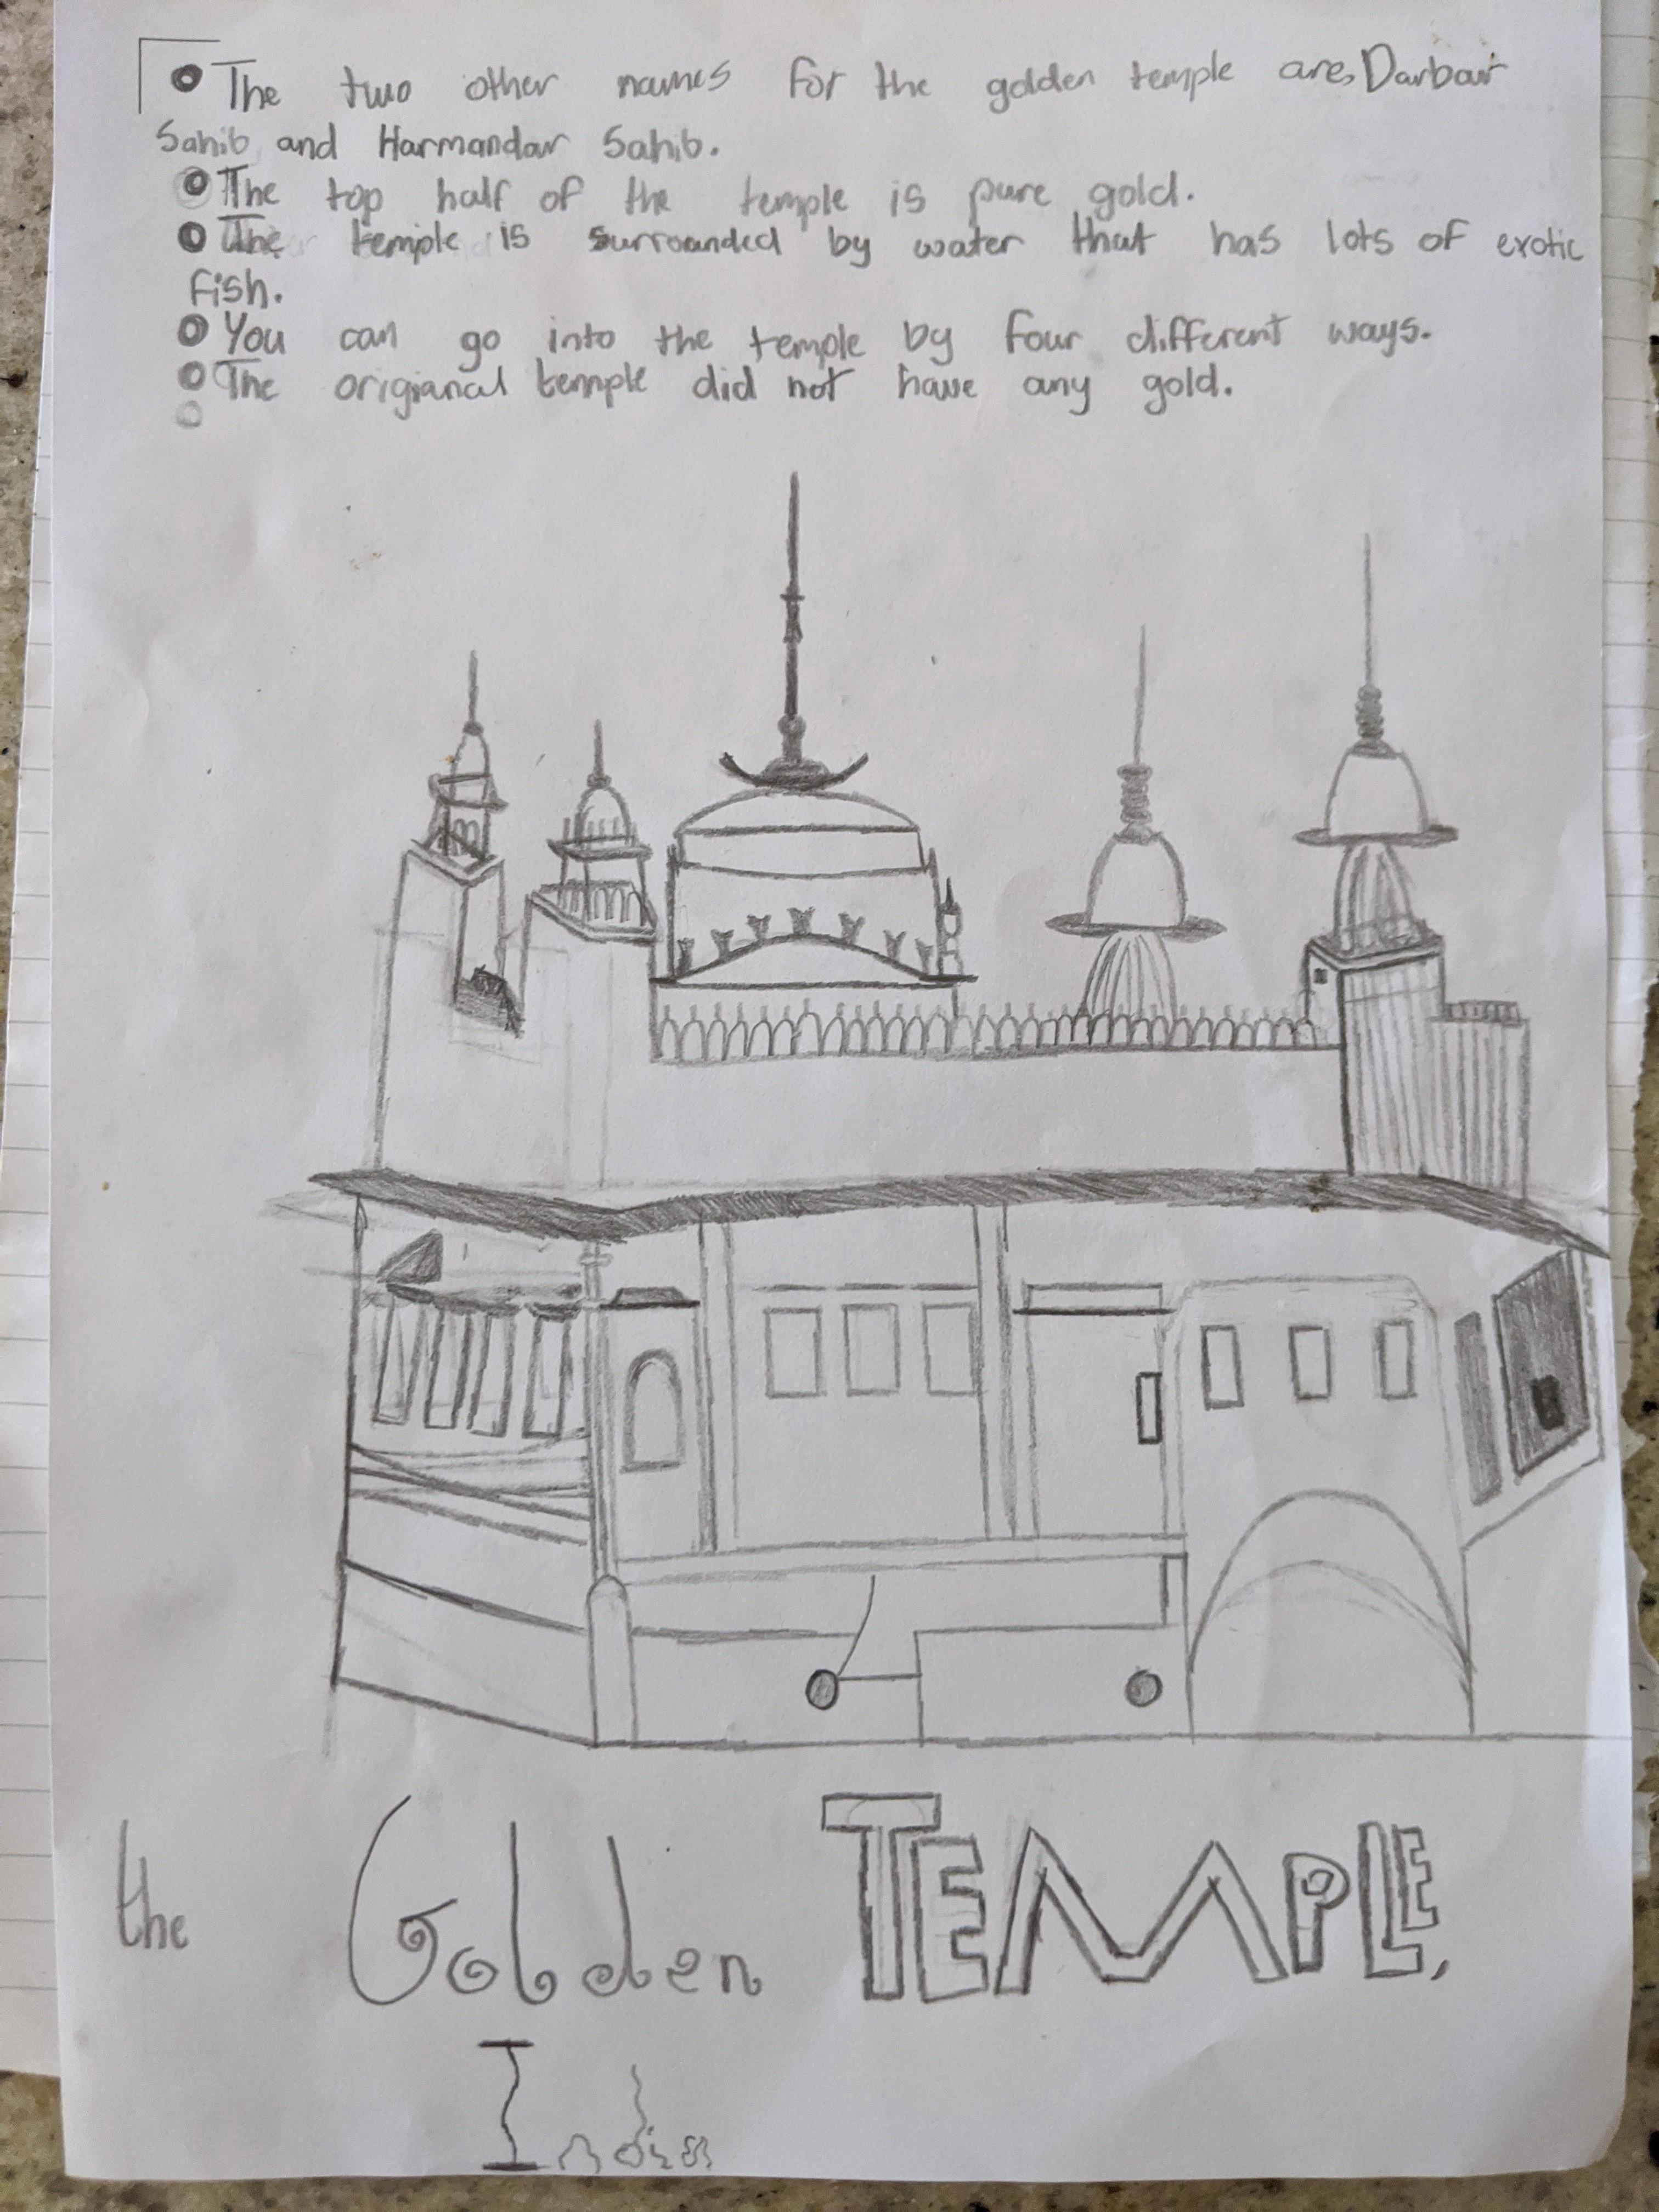 • The two other names for the golden temple are, Darbar
Sahib and Harmandar Sahib.
• The top half of the temple is pure gold.
• The temple is surrounded by water that has lots of exotic
fish.
• You can go into the temple by four different ways.
• The origianal temple did not have any gold.
the Golden TEMPLE,
India